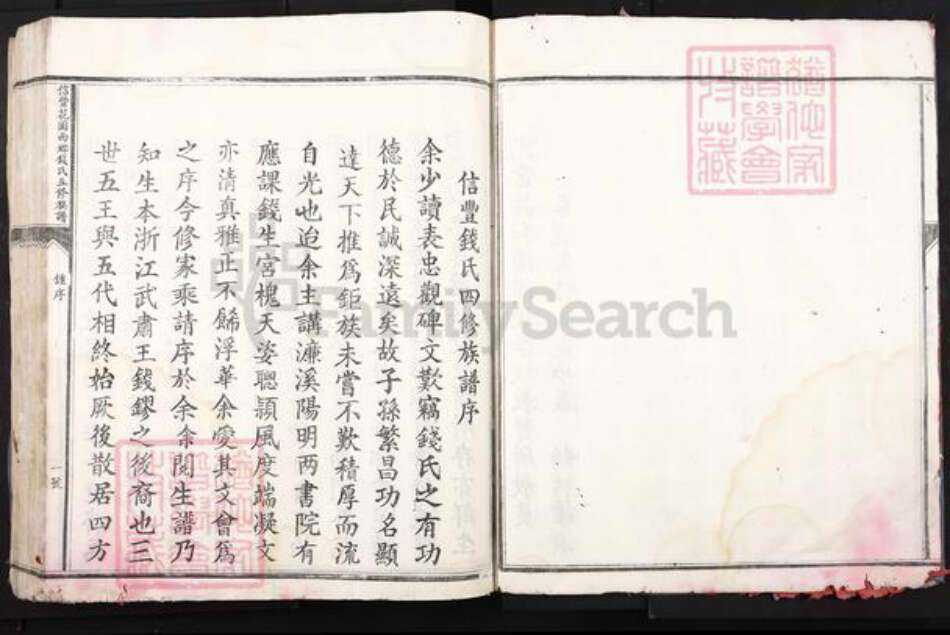 信豐錢氏四修族譜序
余少讀表忠觀碑文歎竊錢氏之有功
德於民誠深遠矣故子孫繁昌功名顯
達天下推爲鉅族未嘗不歎積厚而流
自光也迨余主講濂溪陽明两書院有
應課錢生宮槐天姿聰穎風度端凝文
亦清真雅正不歸浮華余愛其文會爲
之序今修家乘請序於余余閱生譜乃
知生本浙江武肅王錢鏐之後裔也三
世五王與五代相終始厥後散居四方
信豐花園西鄉錢氏五修族譜
鍾序
一號
譜學會
收藏
FamilySearch